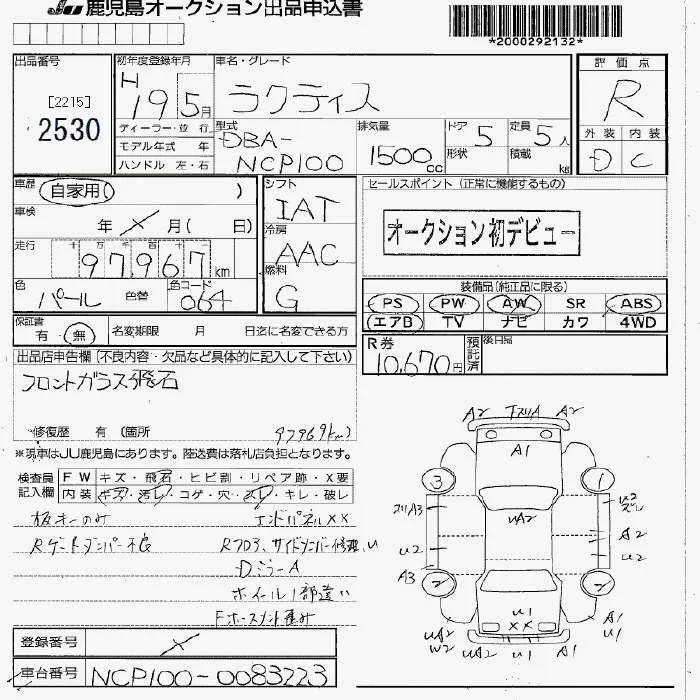 JU 鹿児島オークション出品申込書
*2000292132*
出品番号
[2215]
2530
初年度登録年月
H 19 5月
ディーラー・並 行
モデル年式 年
ハンドル 左・右
車名・グレード
ラクティス
型式
DBA-
NCP100
排気量
1500cc
ドア 5
形状
定員 5人
積載 kg
評価点
R
外装 内装
D C
車歴 自家用( )
車検 年 × 月( 日)
走行 十 万 千 百 十 一
97967km
色 パール 色替 色コード 064
シフト
IAT
冷房
AAC
燃料
G
セールスポイント(正常に機能するもの)
オークション初デビュー
装備品(純正品に限る)
PS PW AW SR ABS
エアB TV ナビ カワ 4WD
保証書 有 ・ 無
名変期限 月 日迄に名変できる方
R券
10,670円
預託済
後日品
出品店申告欄(不良内容・欠品など具体的に記入して下さい)
フロントガラス飛石
修復歴 有 (箇所 97969km)
※現車はJU鹿児島にあります。陸送費は落札店負担となります。
検査員記入欄
FW キズ・飛石・ヒビ割・リペア跡・X要
内装 キズ・汚レ・コゲ・穴・スレ・キレ・破レ
板キーのみ エンドパネルXX
Rゲートダンパー不良
Dミラー A
ホイール1部違い
登録番号 ×
車台番号 NCP100-0083223
A2 下スリA A2
A1
3 1
スリA3 uA2 u2 ズレ
A2
u2 u2
A3
2 2
u1
XX
uA2 A1
W2 u1
uA2 u1 u1 A1